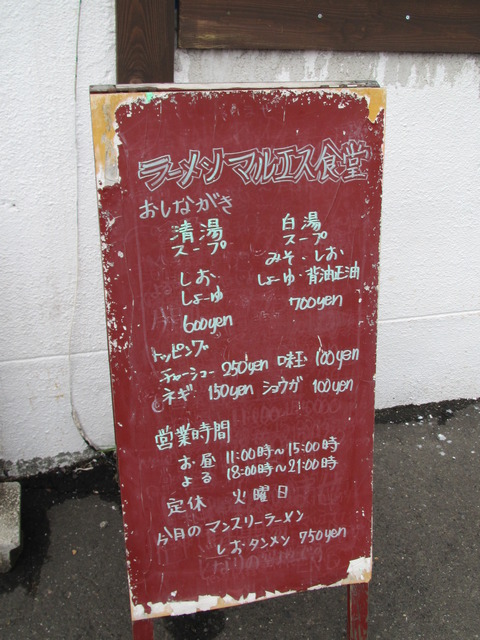 ラーメン マルエス食堂
おしながき
清湯
スープ
しお
しょーゆ
600yen
白湯
スープ
みそ・しお
しょーゆ・背油正油
700yen
トッピング
チャーシュー 250yen 味玉 100yen
ネギ 150yen ショウガ 100yen
営業時間
お昼 11:00時〜15:00時
よる 18:00時〜21:00時
定休 火曜日
今月のマンスリーラーメン
しおタンメン 750yen